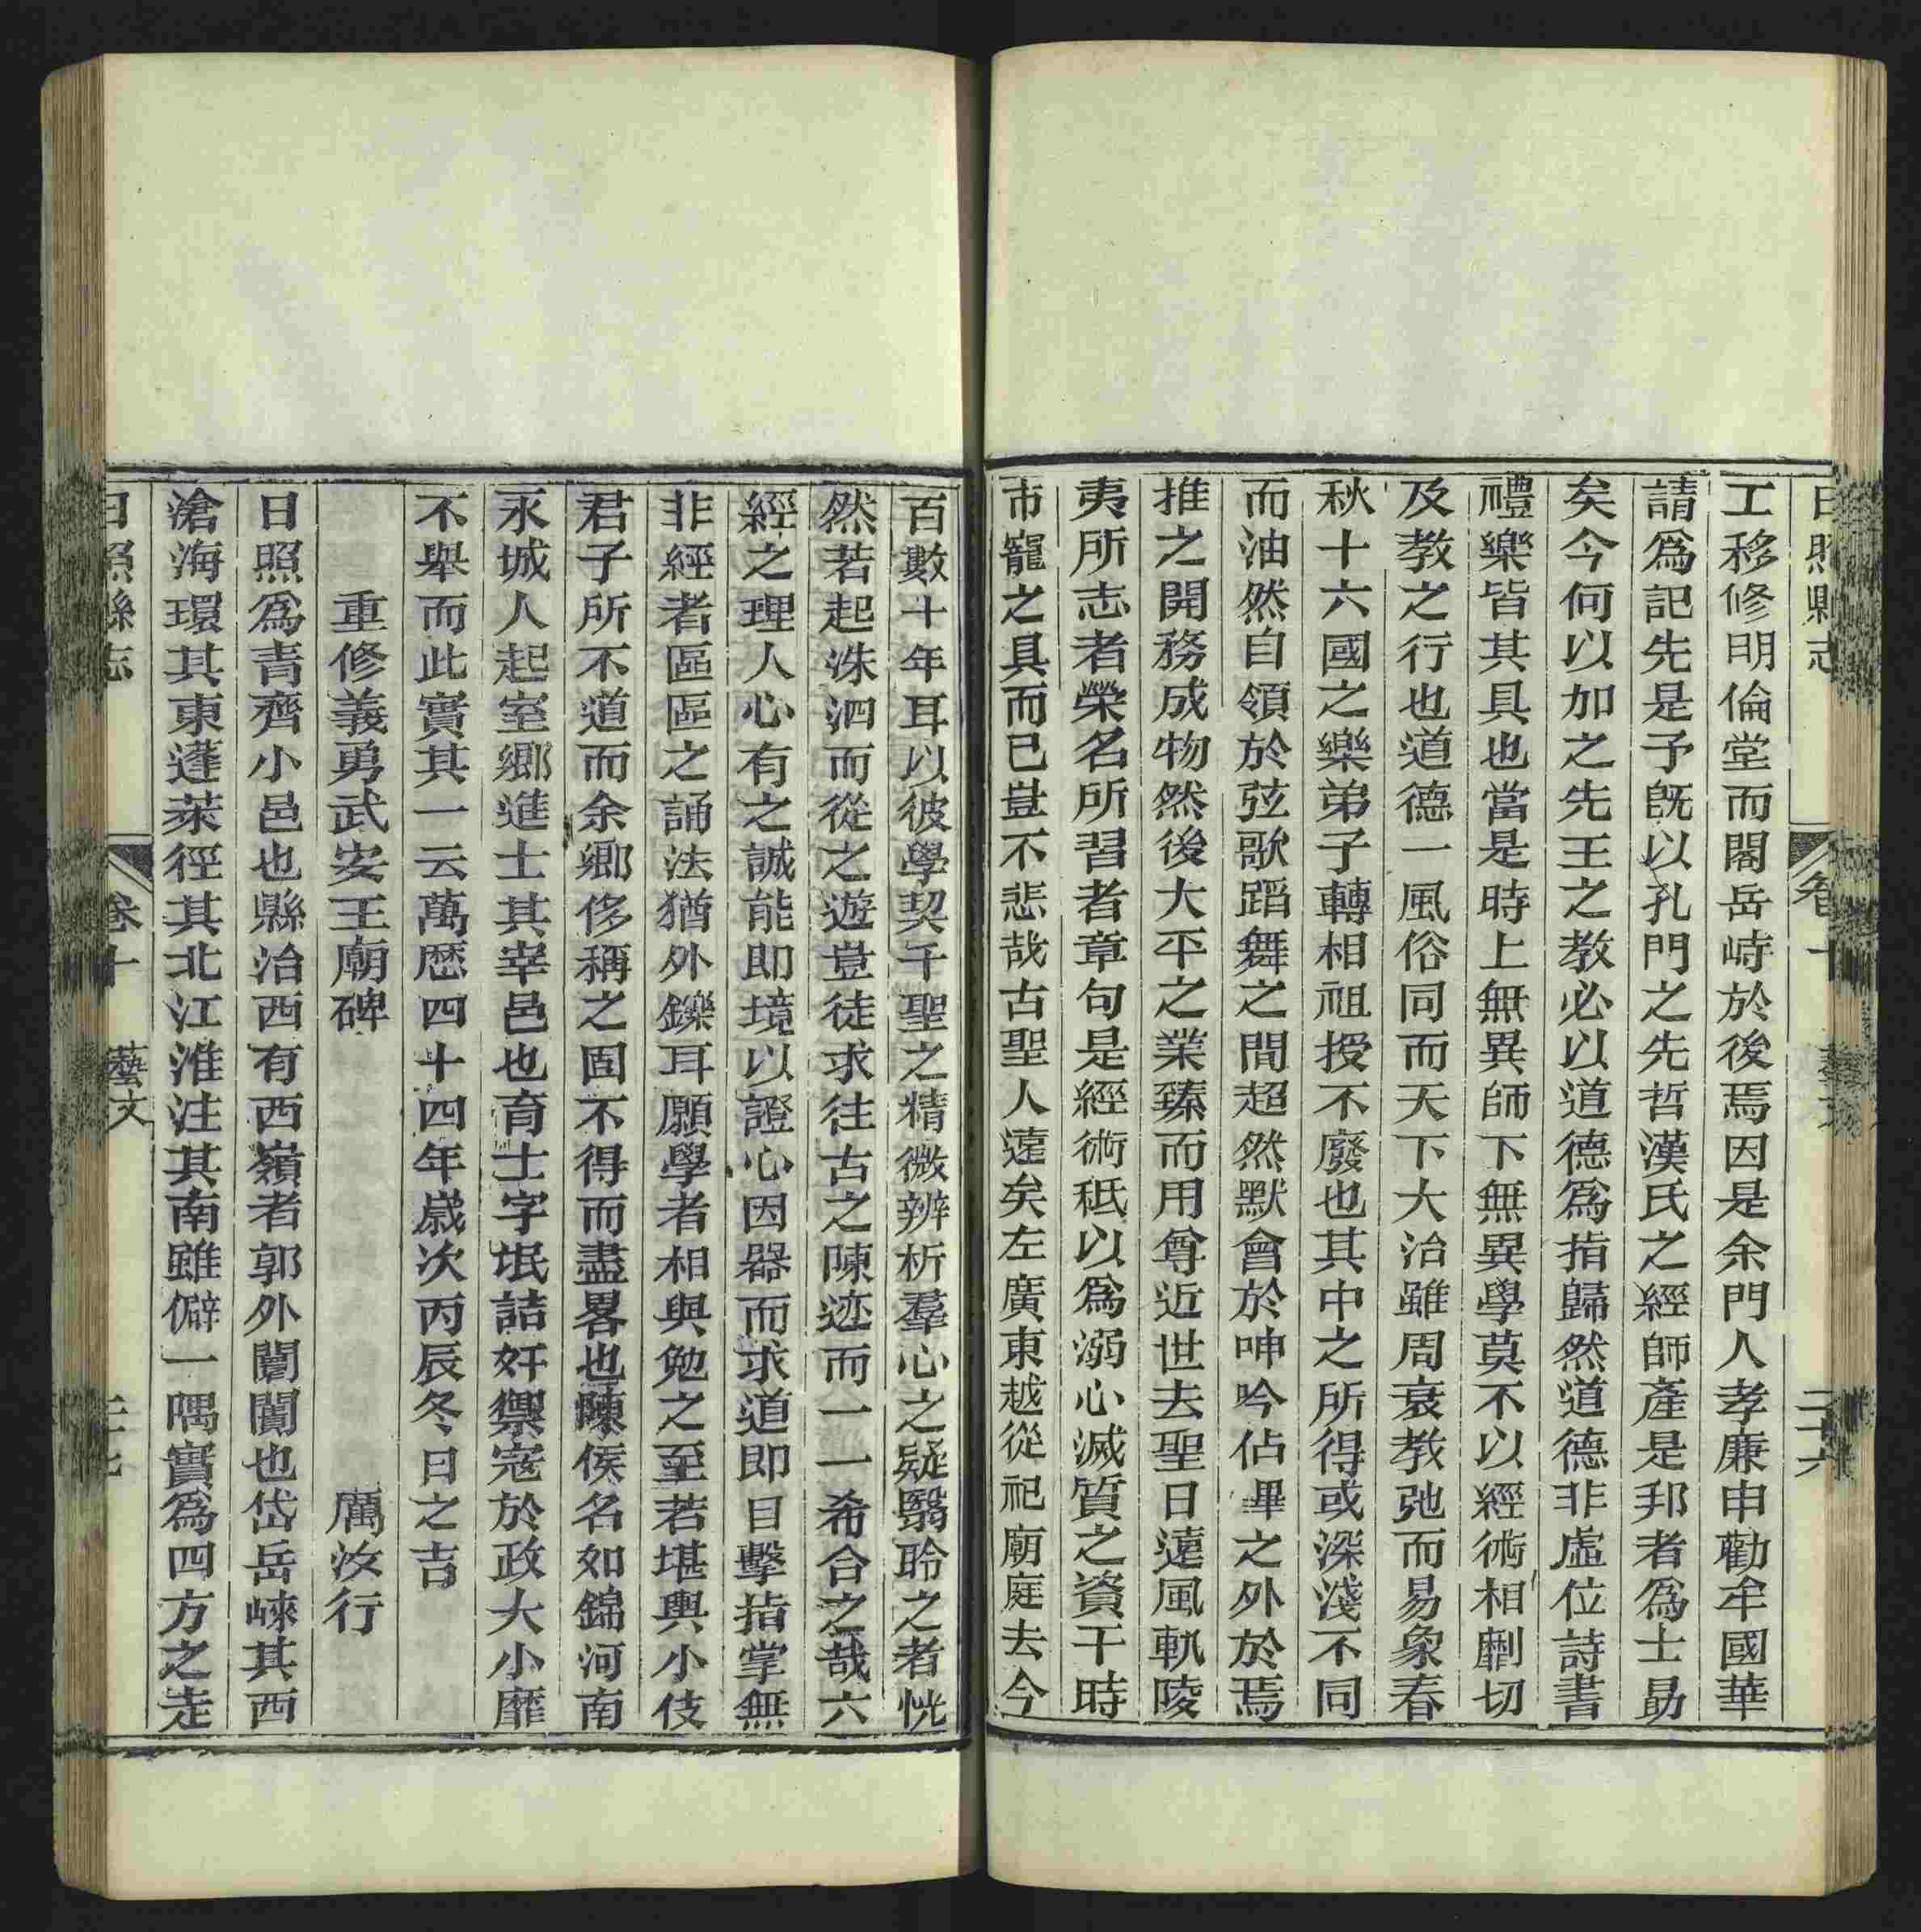 日照縣志 卷十 藝文 二十六
工移修明倫堂而閣岳峙於後焉因是余門人孝廉申勸牟國華
請爲記先是予旣以孔門之先哲漢氏之經師產是邦者爲士勗
矣今何以加之先王之教必以道德爲指歸然道德非虛位詩書
禮樂皆其具也當是時上無異師下無異學莫不以經術相劘切
及教之行也道德一風俗同而天下大治雖周衰教弛而易象春
秋十六國之樂弟子轉相祖授不廢也其中之所得或深淺不同
而油然自領於弦歌蹈舞之間超然默會於呻吟佔畢之外於焉
推之開務成物然後大平之業臻而用尊近世去聖日遠風軌陵
夷所志者榮名所習者章句是經術秪以爲溺心滅質之資干時
市寵之具而已豈不悲哉古聖人遠矣左廣東越從祀廟庭去今
百數十年耳以彼學契千聖之精微辨析羣心之疑翳聆之者恍
然若起洙泗而從之遊豈徒求往古之陳迹而一一希合之哉六
經之理人心有之誠能即境以證心因器而求道即目擊指掌無
非經者區區之誦法猶外鑠耳願學者相與勉之至若堪輿小伎
君子所不道而余鄉侈稱之固不得而盡畧也陳侯名如錦河南
永城人起室鄉進士其宰邑也育士字氓詰奸禦寇於政大小靡
不舉而此實其一云萬歷四十四年歲次丙辰冬日之吉
重修義勇武安王廟碑 厲汝行
日照爲青齊小邑也縣治西有西嶺者郭外闤闠也岱岳崍其西
滄海環其東蓬萊徑其北江淮注其南雖僻一隅實爲四方之走
日照縣志 卷十 藝文 二十七